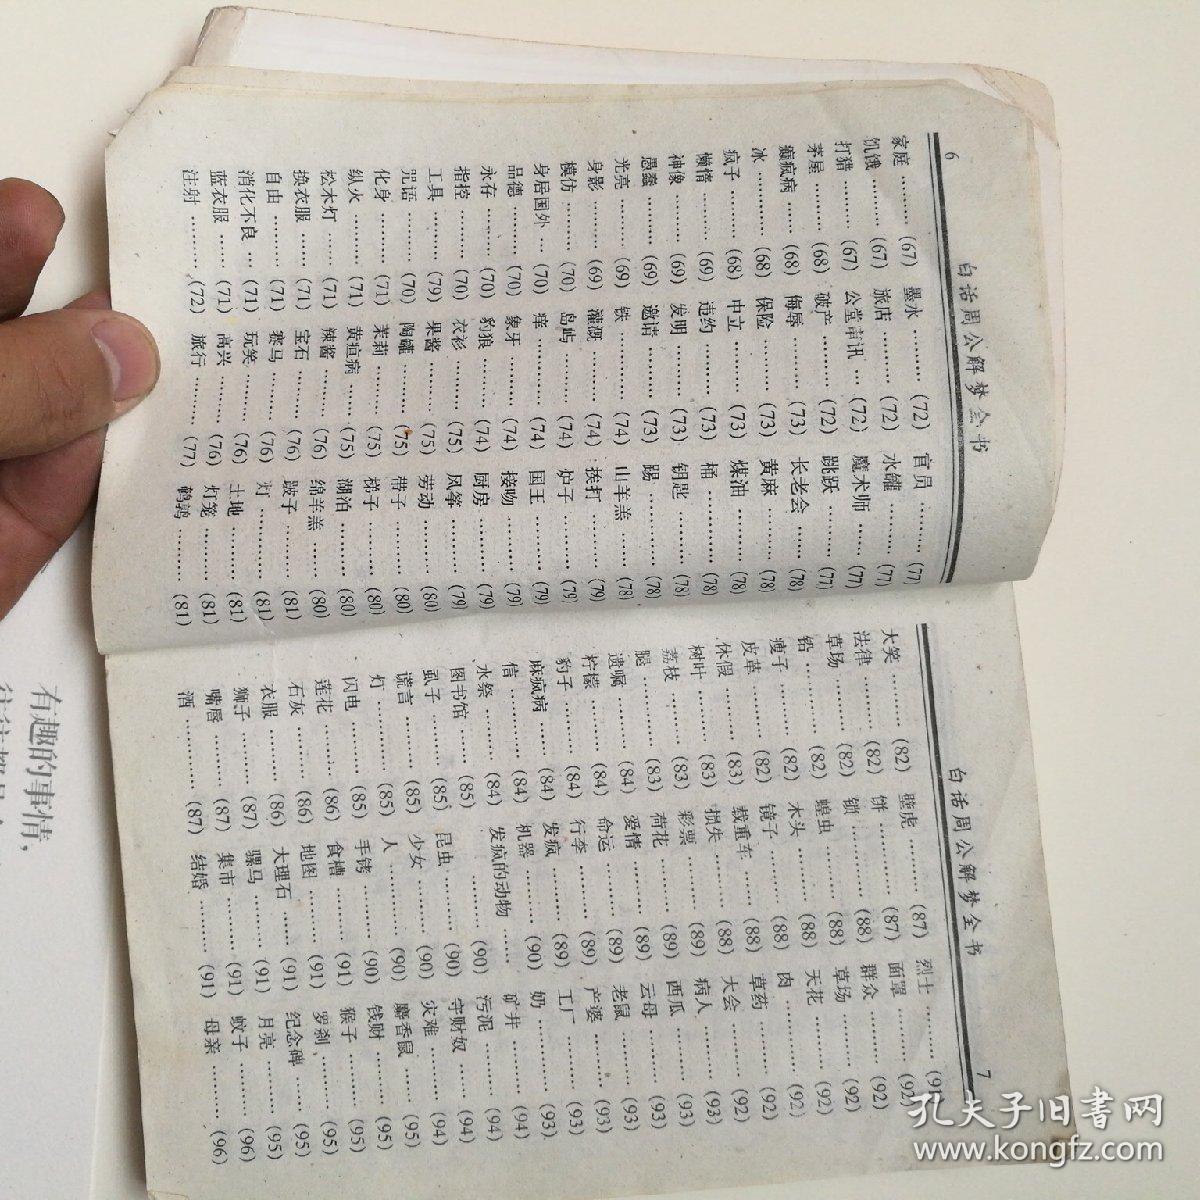 6
白话周公解梦全书
家庭………(67)
饥饿………(67)
打猎………(67)
茅屋………(68)
癫疯病……(68)
冰…………(68)
疯子………(68)
懒惰………(69)
神像………(69)
愚蠢………(69)
光亮………(69)
身影………(69)
模仿………(70)
身居国外…(70)
品德………(70)
永存………(70)
指控………(70)
工具………(79)
咒语………(70)
化身………(71)
纵火………(71)
松水灯……(71)
换衣服……(71)
自由………(71)
消化不良…(71)
蓝衣服……(71)
注射………(72)
墨水………(72)
旅店………(72)
公堂审讯…(72)
破产………(72)
侮辱………(73)
保险………(73)
中立………(73)
违约………(73)
发明………(73)
邀请………(73)
铁…………(74)
灌溉………(74)
岛屿………(74)
痒…………(74)
象牙………(74)
豹狼………(74)
衣衫………(75)
果酱………(75)
陶罐………(75)
茉莉………(75)
黄疸病……(75)
辣酱………(76)
宝石………(76)
赛马………(76)
玩笑………(76)
高兴………(76)
旅行………(77)
官员………(77)
水罐………(77)
魔术师……(77)
跳跃………(77)
长老会……(78)
黄麻………(78)
煤油………(78)
桶…………(78)
钥匙………(78)
踢…………(78)
山羊羔……(78)
挨打………(79)
炉子………(79)
国王………(79)
接吻………(79)
厨房………(79)
风筝………(79)
劳动………(80)
带子………(80)
梯子………(80)
湖泊………(80)
绵羊羔……(80)
跛子………(81)
灯…………(81)
土地………(81)
灯笼………(81)
鹌鹑………(81)
白话周公解梦全书
7
大笑………(82)
法律………(82)
草场………(82)
铅…………(82)
瘦子………(82)
皮革………(82)
休假………(83)
树叶………(83)
荔枝………(83)
腿…………(83)
遗嘱………(84)
柠檬………(84)
豹子………(84)
麻疯病……(84)
信…………(84)
水祭………(84)
图书馆……(85)
虱子………(85)
谎言………(85)
灯…………(85)
闪电………(85)
莲花………(86)
石灰………(86)
衣服………(86)
狮子………(87)
嘴唇………(87)
酒…………(87)
壁虎………(87)
饼…………(87)
锁…………(88)
蝗虫………(88)
木头………(88)
镜子………(88)
载重车……(88)
损失………(88)
彩票………(89)
荷花………(89)
爱情………(89)
命运………(89)
行李………(89)
发疯………(89)
机器………(90)
发疯的动物 ……
……………(90)
昆虫………(90)
少女………(90)
人…………(90)
手铐………(90)
食槽………(91)
地图………(91)
大理石……(91)
骡马………(91)
集市………(91)
结婚………(91)
烈士………
面罩………(92)
群众………(92)
草场………(92)
天花………(92)
肉…………(92)
草药………(92)
大会………(92)
病人………(93)
西瓜………(93)
云母………(93)
老鼠………(93)
产婆………(93)
工厂………(93)
奶…………(93)
矿井………(94)
污泥………(94)
守财奴……(94)
灾难………(94)
麝香鼠……(95)
钱财………(95)
猴子………(95)
罗刹………(95)
纪念碑……(95)
月亮………(95)
蚊子………(96)
母亲………(96)
有趣的事情，
孔夫子旧書网
www.kongfz.com